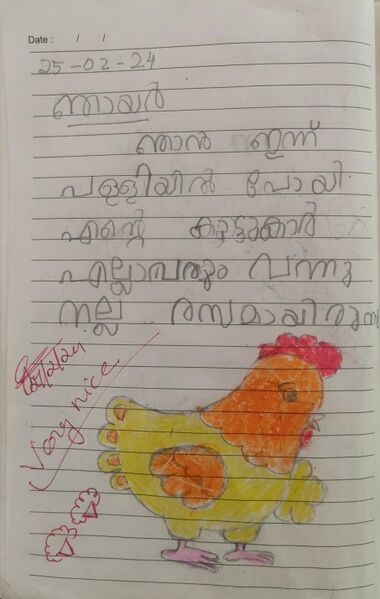 Date : / /
25-02-24
ഞായർ
ഞാൻ ഇന്ന്
പള്ളിയിൽ പോയി.
എന്റെ കൂട്ടുകാർ
എല്ലാവരും വന്നു
നല്ല രസമായിരുന്
Very nice